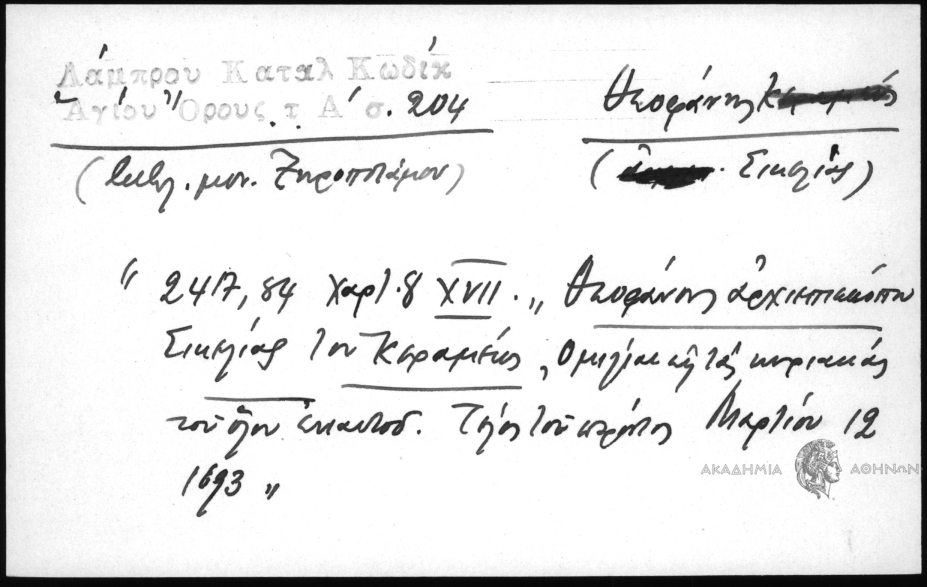 Λάμπρου Καταλ Κωδίκ
Ἁγίου Ὄρους τ Α΄ σ. 204
(βιβλ. μον. Ξηροποτάμου)
Θεοφάνης
( Σικελίας)
" 2417, 84 χαρτ. 8 XVII. „ Θεοφάνους ἀρχιεπισκόπου
Σικελίας του Κεραμέως, Ομιλίαι εἰς τὰς κυριακάς
τοῦ ὅλου ἐνιαυτοῦ. Τέλος τοῦ παρόντος Μαρτίου 12
1693 „
ΑΚΑΔΗΜΙΑ ΑΘΗΝΩΝ